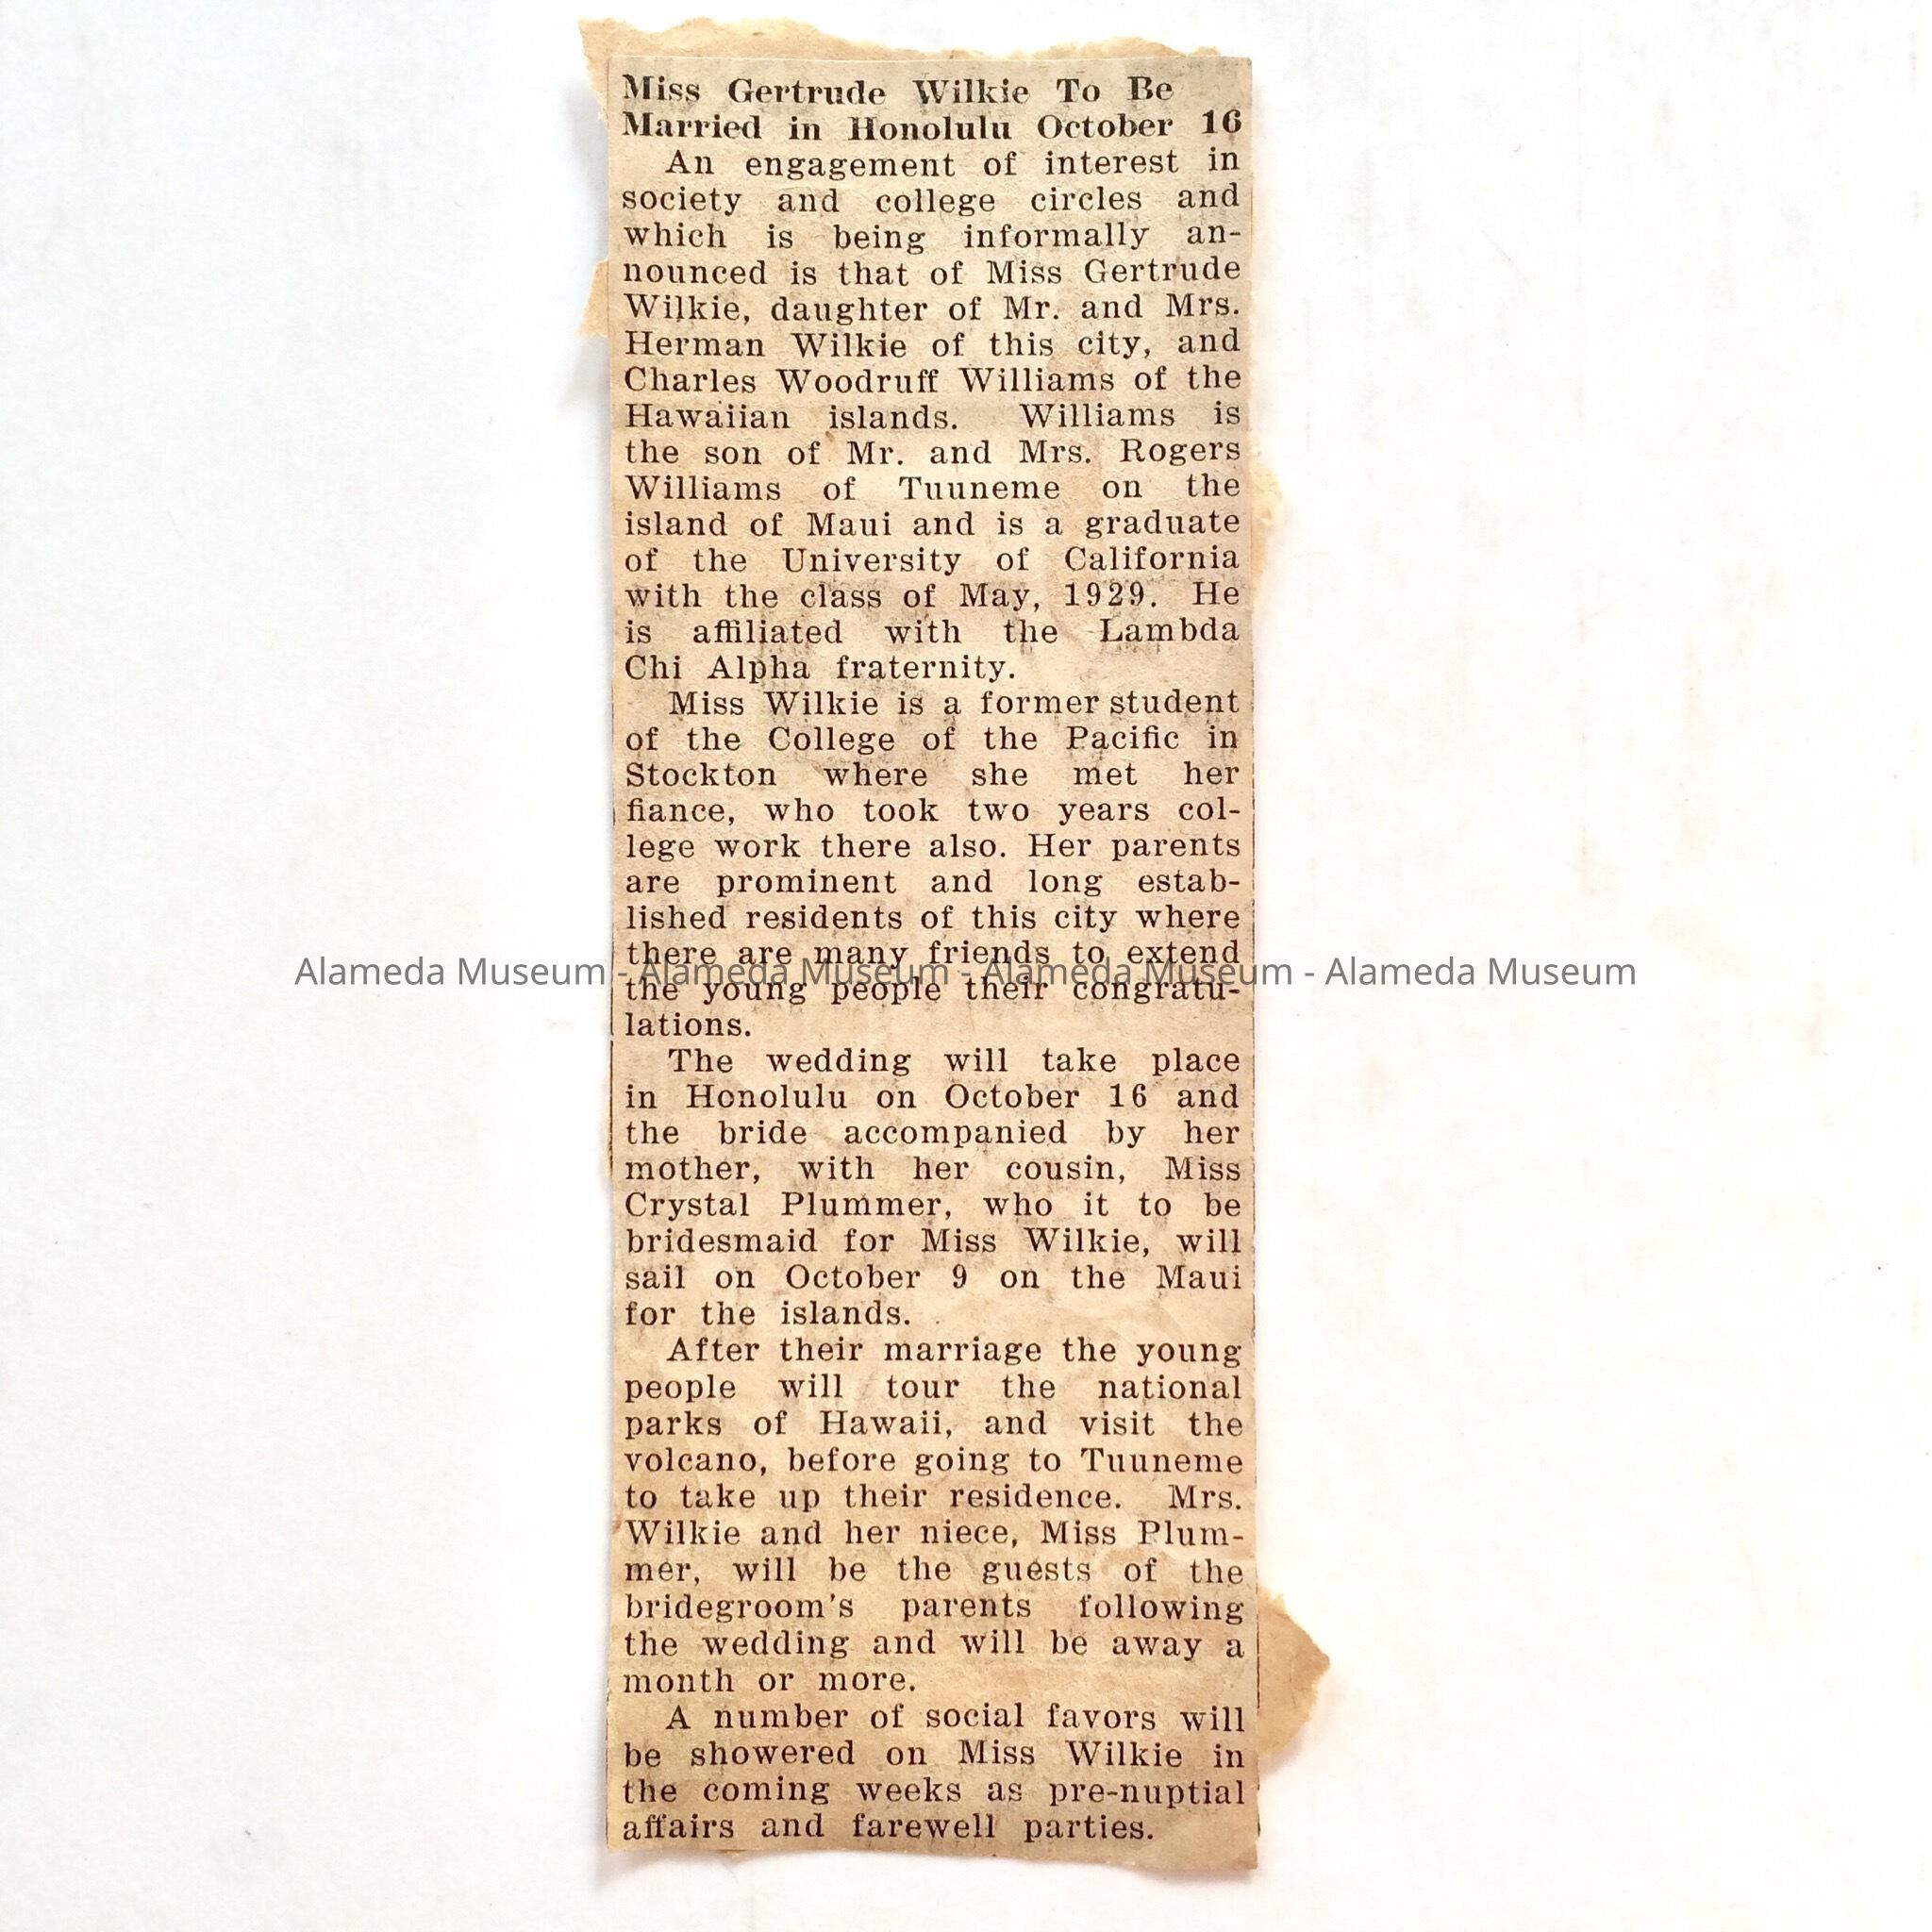 Miss Gertrude Wilkie To Be
Married in Honolulu October 16
An engagement of interest in
society and college circles and
which is being informally an-
nounced is that of Miss Gertrude
Wilkie, daughter of Mr. and Mrs.
Herman Wilkie of this city, and
Charles Woodruff Williams of the
Hawaiian islands. Williams is
the son of Mr. and Mrs. Rogers
Williams of Tuuneme on the
island of Maui and is a graduate
of the University of California
with the class of May, 1929. He
is affiliated with the Lambda
Chi Alpha fraternity.
Miss Wilkie is a former student
of the College of the Pacific in
Stockton where she met her
fiance, who took two years col-
lege work there also. Her parents
are prominent and long estab-
lished residents of this city where
there are many friends to extend
Alameda Museum - Alameda Museum - Alameda Museum - Alameda Museum
the young people their congratu-
lations.
The wedding will take place
in Honolulu on October 16 and
the bride accompanied by her
mother, with her cousin, Miss
Crystal Plummer, who it to be
bridesmaid for Miss Wilkie, will
sail on October 9 on the Maui
for the islands.
After their marriage the young
people will tour the national
parks of Hawaii, and visit the
volcano, before going to Tuuneme
to take up their residence. Mrs.
Wilkie and her niece, Miss Plum-
mer, will be the guests of the
bridegroom's parents following
the wedding and will be away a
month or more.
A number of social favors will
be showered on Miss Wilkie in
the coming weeks as pre-nuptial
affairs and farewell parties.